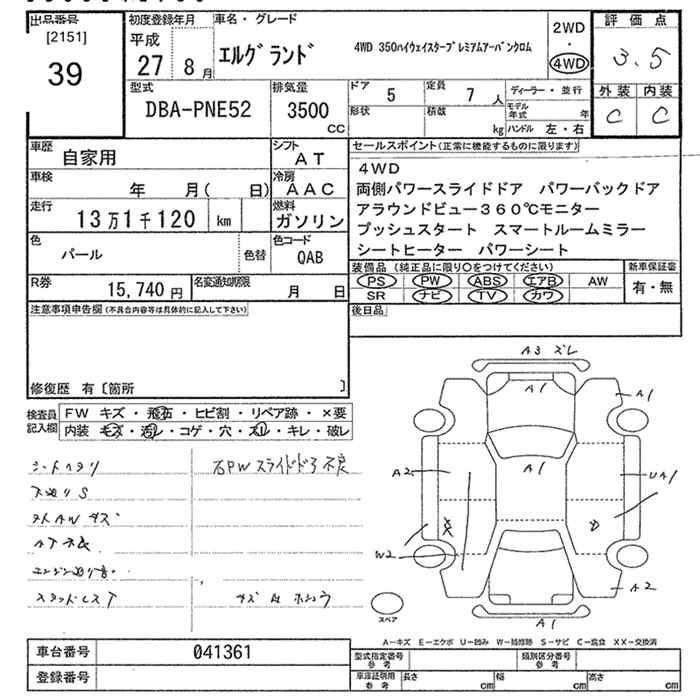 出品番号
[2151]
39
初度登録年月
平成
27 8 月
車名・グレード
エルグランド
4WD 350ハイウェイスタープレミアムアーバンクロム
2WD
・
4WD
評価点
3.5
外装 内装
C C
型式
DBA-PNE52
排気量
3500
CC
ドア 5
定員 7 人
形状
積載
kg
ディーラー・並行
モデル年式 年
ハンドル 左・右
車歴
自家用
シフト
AT
車検
年 月( 日)
冷房
AAC
走行
13万1千120 km
燃料
ガソリン
色
パール
色替
色コード
QAB
R券
15,740 円
名変通知期限
月 日
セールスポイント(正常に機能するものに限ります)
4WD
両側パワースライドドア パワーバックドア
アラウンドビュー360℃モニター
プッシュスタート スマートルームミラー
シートヒーター パワーシート
装備品(純正品に限り○をつけてください)
PS PW ABS エアB AW
SR ナビ TV カワ
新車保証書
有・無
後日品
注意事項申告欄(不具合内容等は具体的に記入して下さい)
修復歴 有〔箇所 〕
検査員記入欄
FW キズ・飛石・ヒビ割・リペア跡・×要
内装 キズ・汚レ・コゲ・穴・スレ・キレ・破レ
シートヘタリ
下廻りS
右PWスライドドア不良
スタッドレスT
A3 ズレ
A1
A1
A1
A2
UA1
W2
A2
A1
スペア
A-キズ E-エクボ U-凹み W-補修跡 S-サビ C-腐食 XX-交換済
車台番号
041361
登録番号
型式指定番号
参考
類別区分番号
参考
車庫証明用
参考
長さ cm
幅 cm
高さ cm